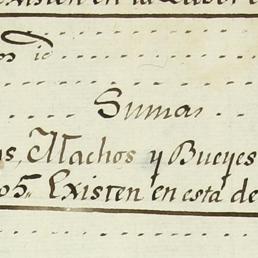 Existen en la Labor
id
Suma
Machos y Bueyes
Existen en esta de